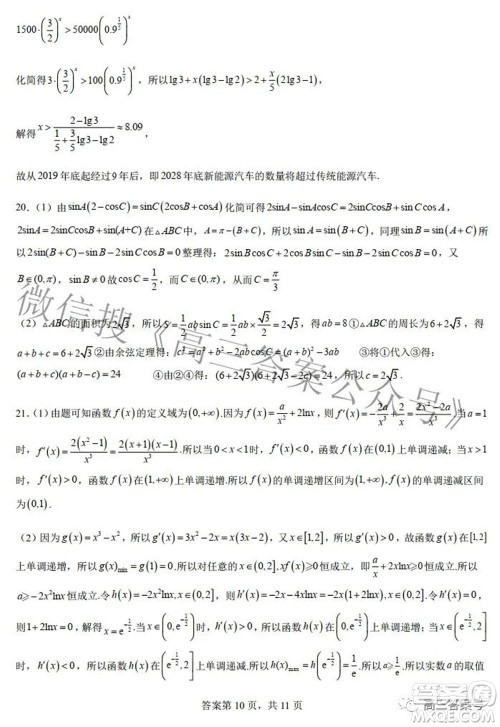 1500·(3/2)^x > 50000(0.9^{1/5})^x
化简得3·(3/2)^x > 100(0.9^{1/5})^x，所以lg3+x(lg3−lg2)>2+x/5(2lg3−1)，
解得 x > (2−lg3)/(1/5+3/5 lg3−lg2) ≈ 8.09，
故从 2019 年底起经过 9 年后，即 2028 年底新能源汽车的数量将超过传统能源汽车.
20.（1）由 sinA(2−cosC)=sinC(2cosB+cosA) 化简可得 2sinA−sinAcosC=2sinCcosB+sinCcosA，
2sinA=2sinCcosB+sin(A+C) 在△ABC 中，A=π−(B+C)，所以 sinA=sin(B+C)，同理 sinB=sin(A+C) 所
以 2sin(B+C)−sinB−2sinCcosB=0 整理得：2sinBcosC+2cosBsinC−sinB−2sinCcosB=0，又
B∈(0,π)，sinB≠0 故 cosC=1/2，而 C∈(0,π)，从而 C=π/3
（2）△ABC 的面积为2√3，所以 S=1/2 absinC=1/2 ab×√3/2=2√3，得 ab=8①△ABC 的周长为 6+2√3，得
a+b+c=6+2√3②由余弦定理得：c²=a²+b²−2abcosC=a²+b²−ab ③将①代入③得：
(a+b+c)(a+b−c)=24 ④由②④得：(6+2√3)(6+2√3−2c)=24，所以 c=2√3.
21.（1）由题可知函数 f(x) 的定义域为 (0,+∞). 因为 f(x)=a/x²+2lnx，则 f'(x)=−2a/x³+2/x=(2x²−2a)/x³. 当 a=1
时，f'(x)=2(x²−1)/x³=2(x+1)(x−1)/x³. 所以当 0<x<1 时，f'(x)<0，函数 f(x) 在 (0,1) 上单调递减；当 x>1
时，f'(x)>0，函数 f(x) 在 (1,+∞) 上单调递增. 所以函数 f(x) 的单调递增区间为 (1,+∞)，单调递减区间
为 (0,1).
（2）因为 g(x)=x³−x²，所以 g'(x)=3x²−2x=x(3x−2)，又 x∈[1,2]，所以 g'(x)>0，故函数 g(x) 在 [1,2]
上单调递增，所以 g(x)min=g(1)=0. 所以对任意的 x∈(0,2]，xf(x)⩾0 恒成立，即 a/x+2xlnx⩾0 恒成立，所以
a⩾−2x²lnx 恒成立. 令 h(x)=−2x²lnx,x∈(0,2]，则 h'(x)=−2x−4xlnx=−2x(1+2lnx),x∈(0,2]. 令 h'(x)=0，
则 1+2lnx=0，解得 x=e^{−1/2}. 当 x∈(0,e^{−1/2}) 时，h'(x)>0，函数 h(x) 在 (0,e^{−1/2}) 上单调递增；当 x∈(e^{−1/2},2]
时，h'(x)<0，函数 h(x) 在 (e^{−1/2},2] 上单调递减. 所以 h(x)max=h(e^{−1/2})=1/e，所以 a⩾1/e，所以实数 a 的取值
答案第 10 页，共 11 页
微信搜《高三答案公众号》
高三答案号